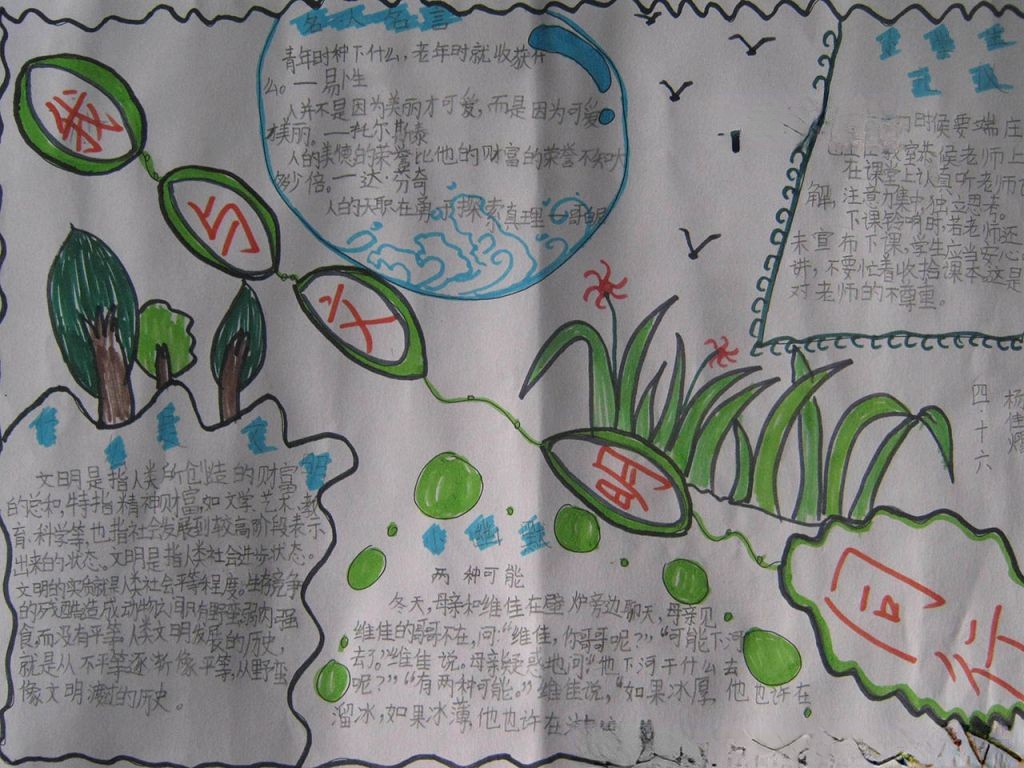 我
与
文
明
同行
名人名言
青年时种下什么,老年时就收获什
么。——易卜生
人并不是因为美丽才可爱,而是因为可爱
才美丽。——托尔斯泰
人的美德的荣誉比他的财富的荣誉不知大
多少倍。——达·芬奇
人的天职在勇于探索真理
时候要端庄
候老师上
在课堂上认真听老师
解,注意力集中,独立思考。
下课铃响时,若老师还
未宣布下课,学生应当安心
讲,不要忙着收拾课本,这是
对老师的不尊重。
四·十六
杨佳
文明是指人类所创造的财富
的总和,特指精神财富,如文学、艺术、教
育、科学等,也指社会发展到较高阶段表示
出来的状态。文明是指人类社会进步状态。
文明的实质就是人类社会平等程度。生存竞争
的残酷造成动物
食,而没有平等,人类文明发展的历史,
就是从不平等逐渐像平等,从野蛮
像文明演进的历史。
两种可能
冬天,母亲和维佳在壁炉旁边聊天,母亲见
维佳的哥哥不在,问:“维佳,你哥哥呢?”“可能下河
去了。”维佳说。母亲疑惑地问:“他下河干什么去
呢?”“有两种可能。”维佳说,“如果冰厚,他也许在
溜冰,如果冰薄,他也许在